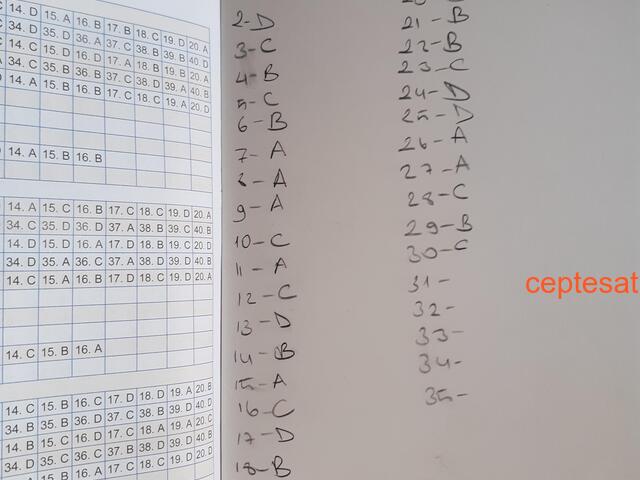 14. D 15. A 16. B 17. B 18. C 19. D 20. A
34. D 35. D 36. A 37. C 38. B 39. B 40. D
14. C 15. D 16. D 17. A 18. B 19. B 20. A
34. C 35. B 36. B 37. C 38. D 39. A 40. B
14. A 15. B 16. B 17. C 18. C 19. A 20. D
14. A 15. B 16. B
14. A 15. C 16. B 17. C 18. C 19. D 20. A
34. C 35. D 36. D 37. A 38. B 39. C 40. B
14. D 15. D 16. A 17. D 18. B 19. C 20. D
34. D 35. A 36. D 37. A 38. C 39. D 40. B
14. C 15. A 16. B 17. D 18. C 19. D 20. A
14. C 15. B 16. A
14. C 15. B 16. C 17. D 18. D 19. A 20. B
34. B 35. B 36. D 37. C 38. B 39. D 40. D
14. B 15. C 16. D 17. C 18. A 19. A 20. C
34. D 35. C 36. C 37. B 38. D 39. D 40. B
15. B 16. A 17. C 18. C 19. D 20. A
2-D
3-C
4-B
5-C
6-B
7-A
8-A
9-A
10-C
11-A
12-C
13-D
14-B
15-A
16-C
17-D
18-B
21-B
22-B
23-C
24-D
25-D
26-A
27-A
28-C
29-B
30-C
31-
32-
33-
34-
35-
ceptesat